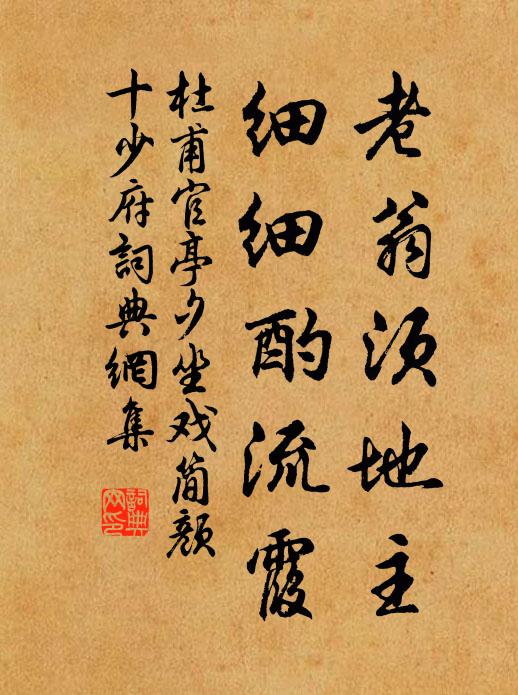 老翁须地主
细细酌流霞
杜甫官亭夕坐戏简颜
十少府詞典網集
詞典
网印